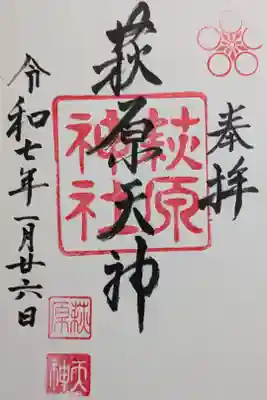 奉拝
萩原天神
萩原
神社
令和七年一月廿六日
萩原
天神